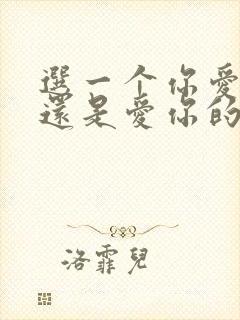 選一个你愛
還是愛你的
洛霏兒